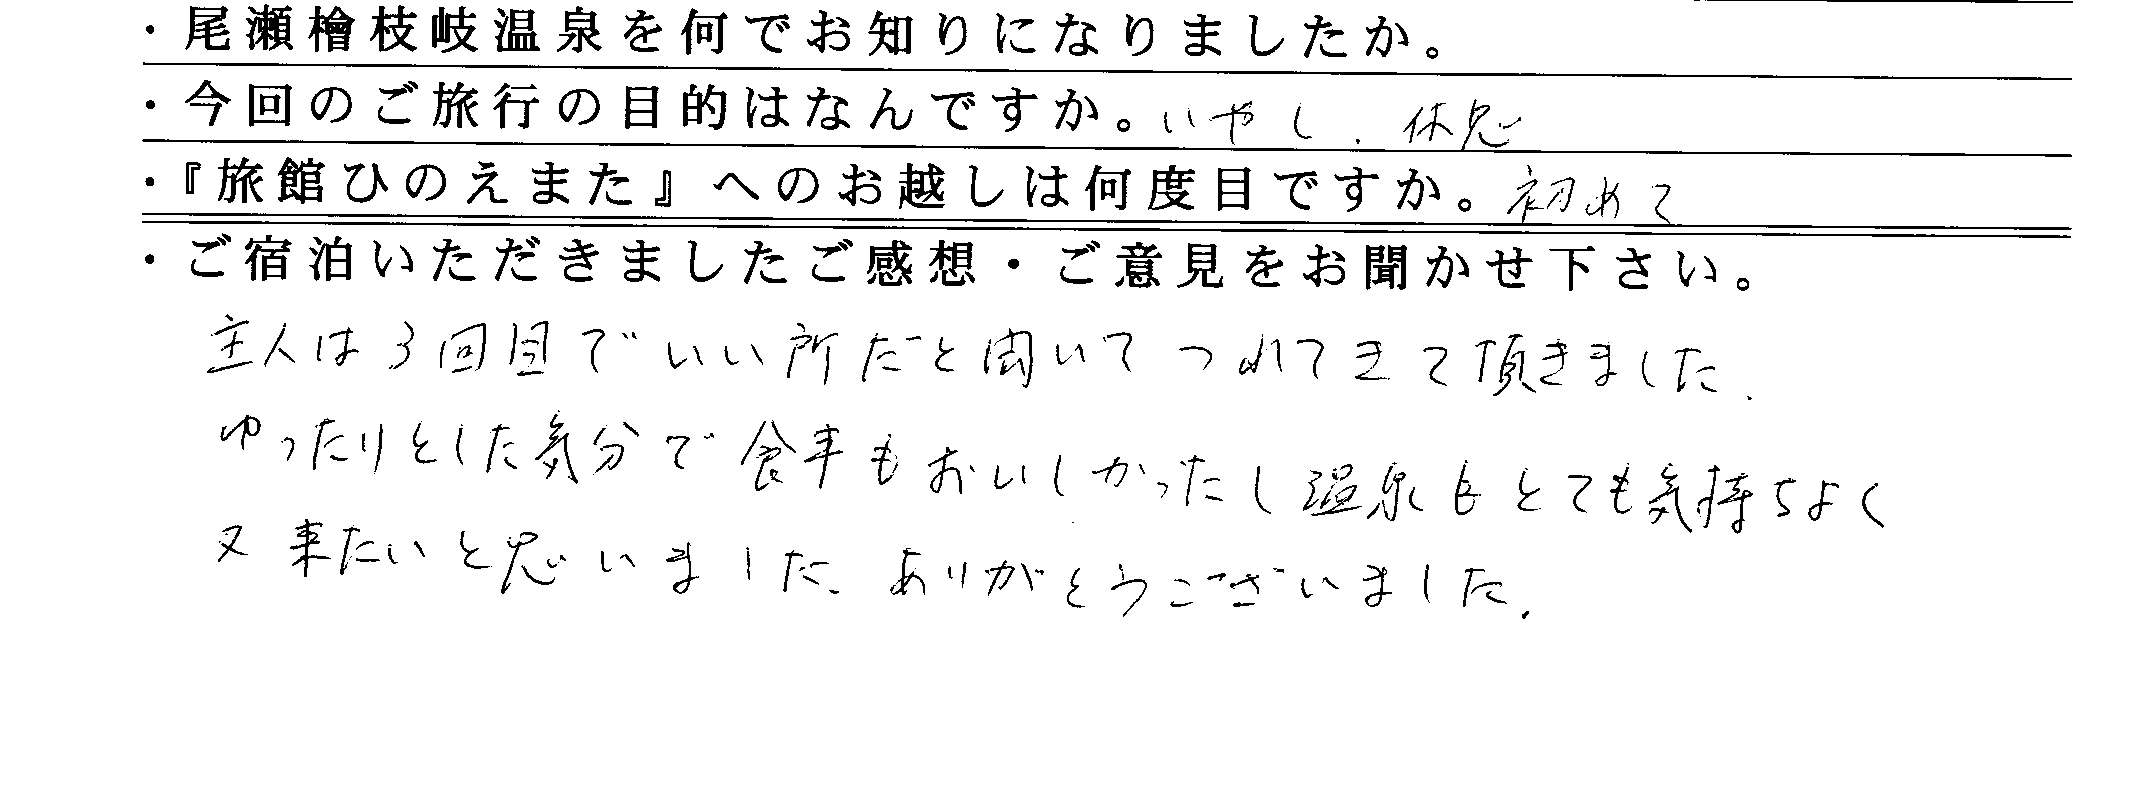 ・尾瀬檜枝岐温泉を何でお知りになりましたか。
・今回のご旅行の目的はなんですか。いやし．休息
・『旅館ひのえまた』へのお越しは何度目ですか。初めて
・ご宿泊いただきましたご感想・ご意見をお聞かせ下さい。
主人は3回目でいい所だと聞いてつれてきて頂きました．
ゆったりとした気分で食事もおいしかったし温泉もとても気持ちよく
又来たいと思いました．ありがとうございました．